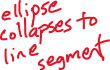 ellipse
collapses to
line
segment